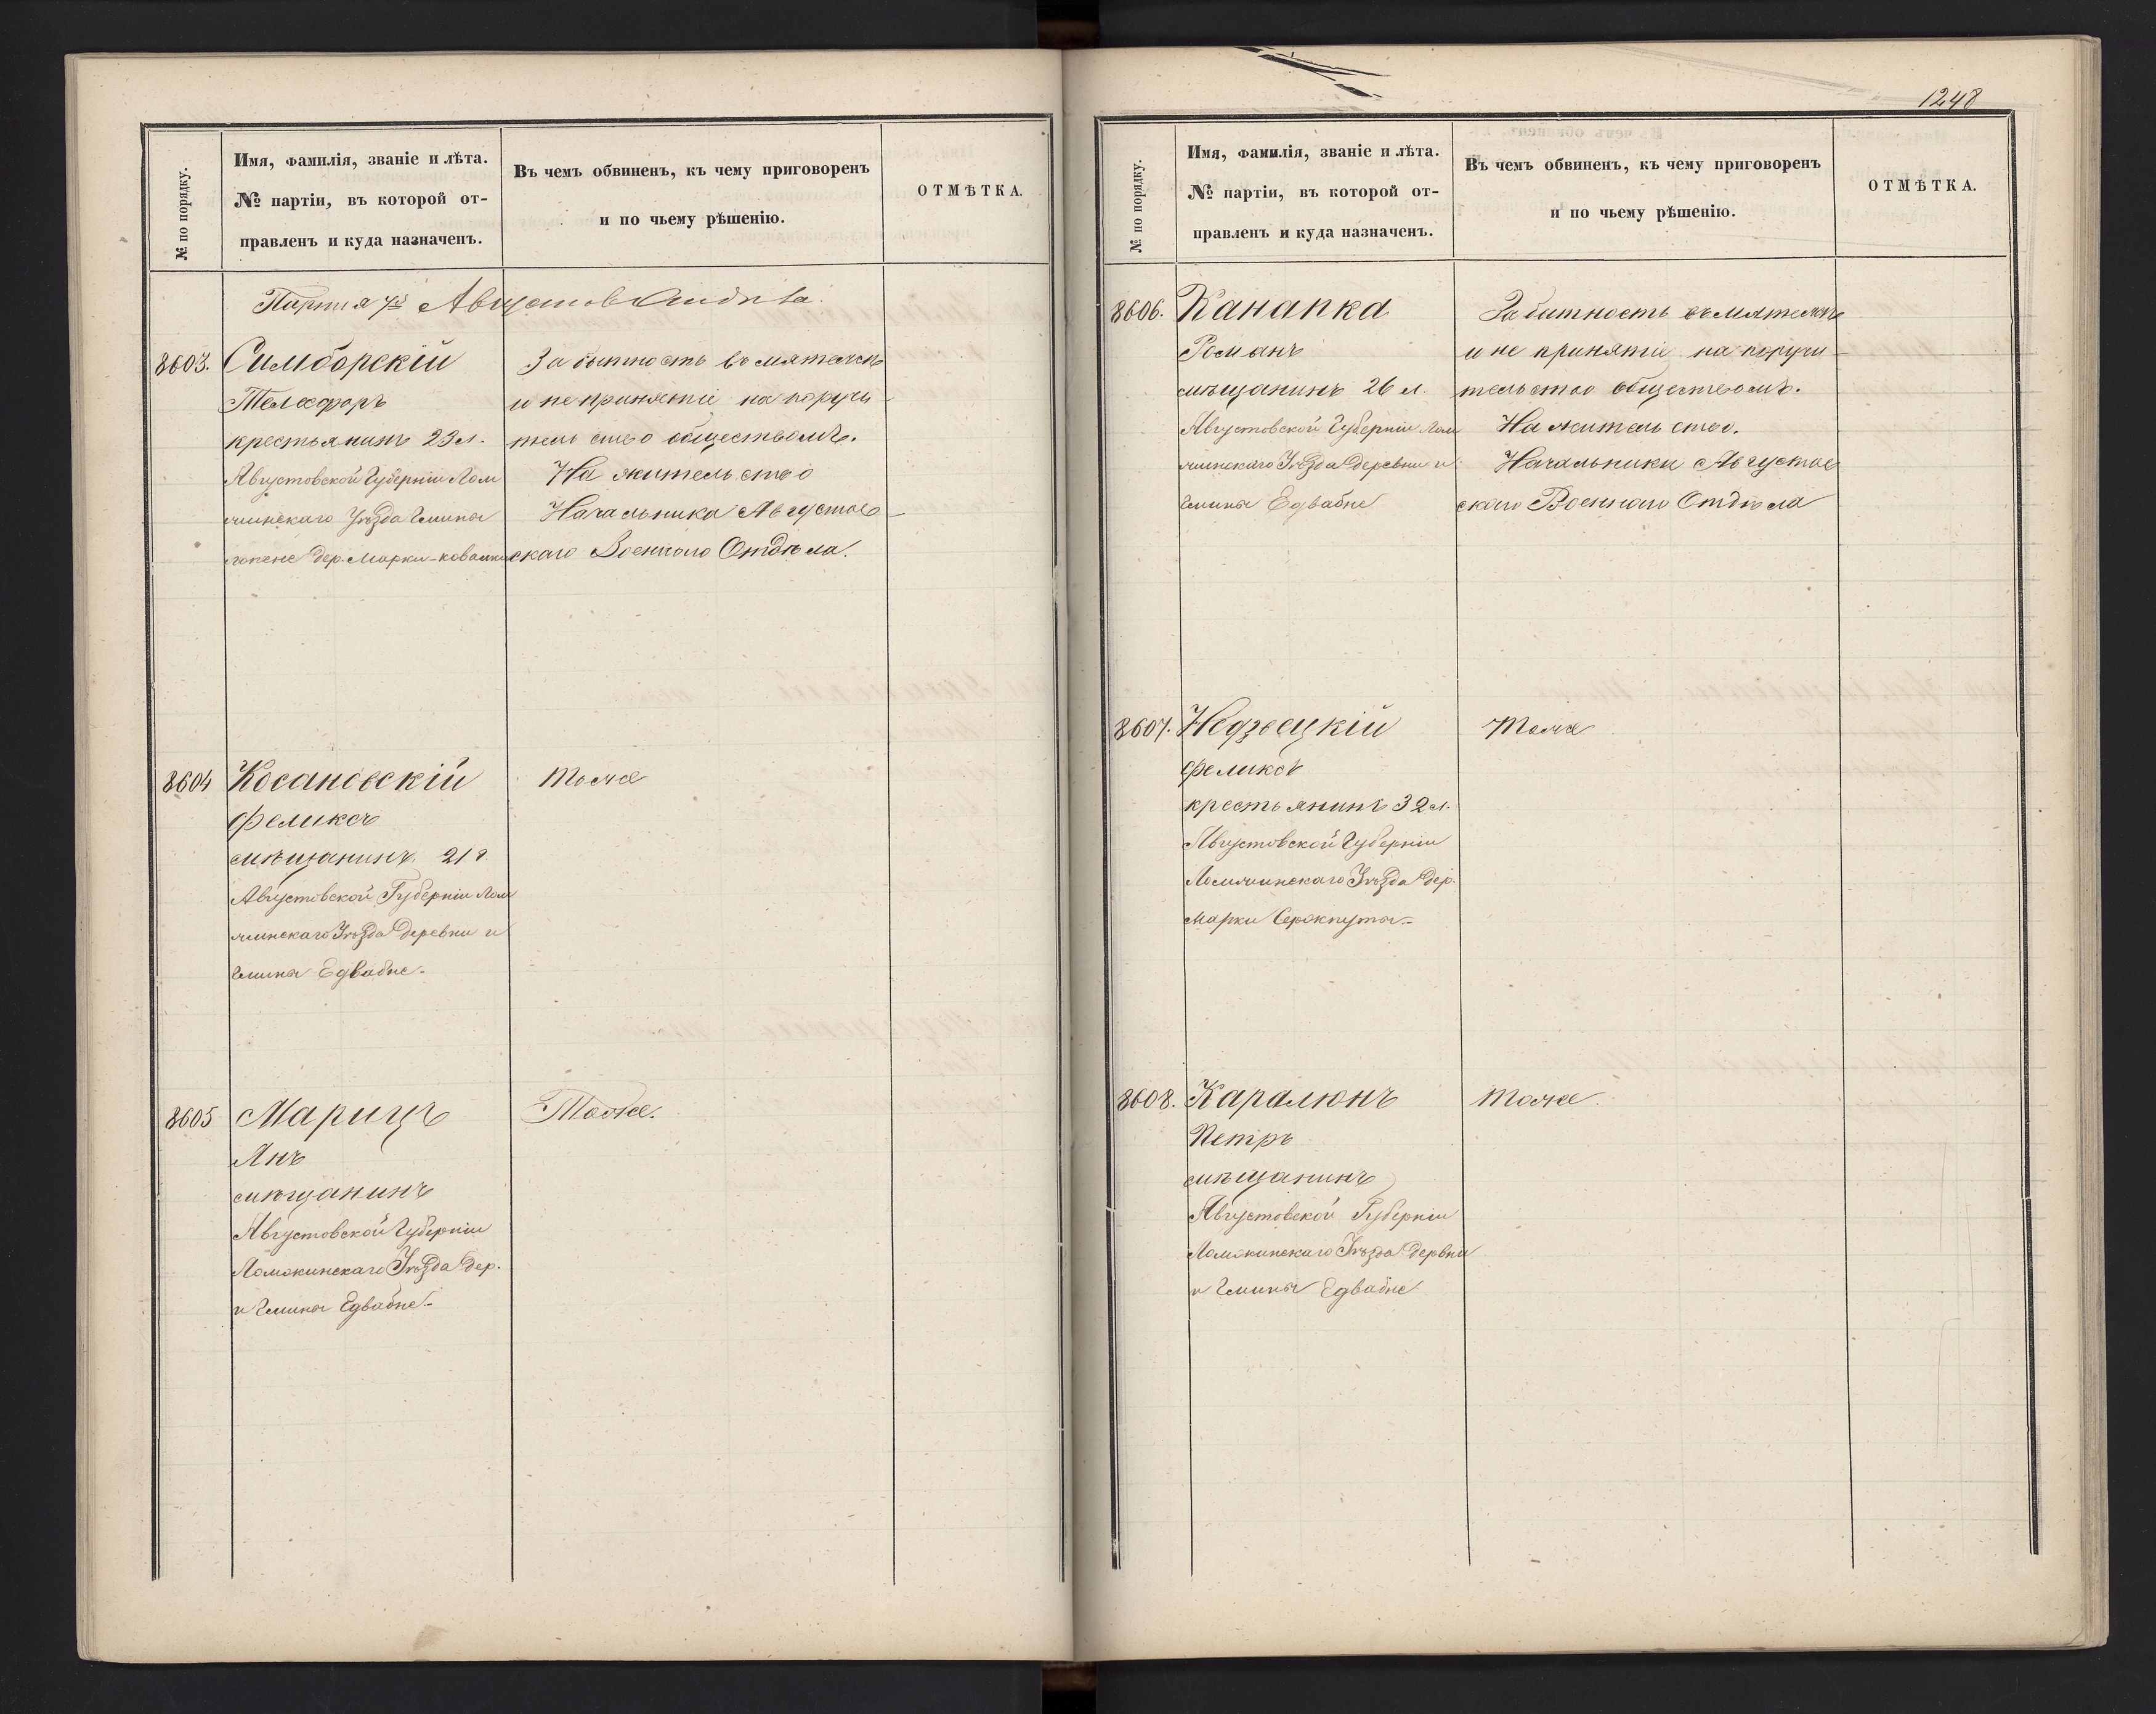 № по порядку.
Имя, фамилія, званіе и лѣта.
№ партіи, въ которой от-
правленъ и куда назначенъ.
Въ чемъ обвиненъ, къ чему приговоренъ
и по чьему рѣшенію.
ОТМѢТКА.
Партія 7я Августов Отдѣла.
8603. Симборскій
Телесфоръ
крестьянинъ 23 л.
Августовской Губерніи Лом
жинскаго Уѣзда Гмины
дер. Марки-
За бытность въ мятежѣ
и не принятіе на поручи-
тельство обществомъ.
На жительство
Начальника Августов-
скаго Военнаго Отдѣла.
8604 Косановскій
Феликсъ
мѣщанинъ 21 г.
Августовской Губерніи Лом
жинскаго Уѣзда деревни и
Гмины Едвабне.
тоже
8605 Марицъ
Янъ
мѣщанинъ
Августовской Губерніи
Ломжинскаго Уѣзда дер.
и Гмины Едвабне.
Тоже.
1248
№ по порядку.
Имя, фамилія, званіе и лѣта.
№ партіи, въ которой от-
правленъ и куда назначенъ.
Въ чемъ обвиненъ, къ чему приговоренъ
и по чьему рѣшенію.
ОТМѢТКА.
8606. Канапка
Романъ
мѣщанинъ 26 л.
Августовской Губерніи Лом
жинскаго Уѣзда деревни и
Гмины Едвабне
За бытность въ мятежѣ
и не принятіе на поручи-
тельство обществомъ.
На жительство.
Начальника Августов
скаго Военнаго Отдѣла
8607. Недзвецкій
Феликсъ
крестьянинъ 32 л.
Августовской Губерніи
Ломжинскаго Уѣзда дер.
Марки
тоже
8608. Каралюнъ
Петръ
мѣщанинъ
Августовской Губерніи
Ломжинскаго Уѣзда дервни
и Гмины Едвабне
тоже.